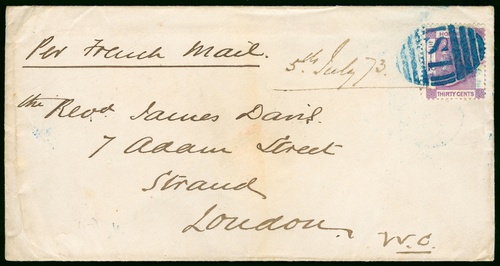 Per French Mail.
5th July 73.
HO
S1
THIRTY CENTS
the Revd. James Davis.
7 Adam Street
Strand
London.
W.C.